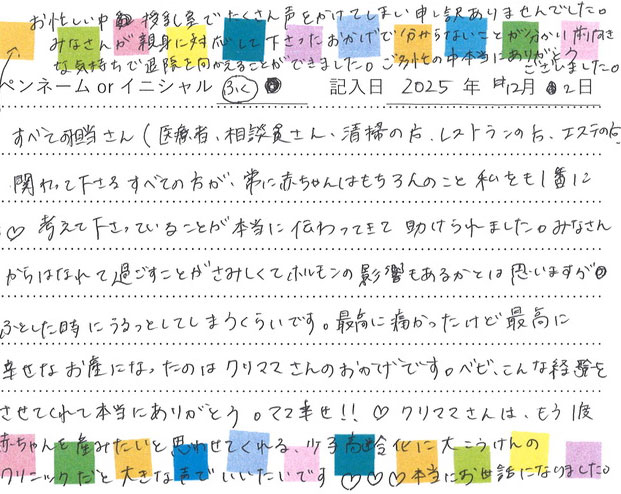 お忙しい中 授乳室でたくさん声をかけてしまい申し訳ありませんでした。
みなさんが親身に対応して下さったおかげで分からないことが分かり前向き
な気持ちで退院を向かえることができました。ご多忙の中本当にありがとう
ございました。
ペンネーム or イニシャル ふく 記入日 2025 年 12月 2日
すべての担当さん(医療者、相談員さん、清掃の方、レストランの方、エステの方)
関わって下さるすべての方が、常に赤ちゃんはもちろんのこと 私をも1番に
♡ 考えて下さっていることが本当に伝わってきて 助けられました。みなさん
からはなれて過ごすことがさみしくて、ホルモンの影響もあるかとは思いますが
ふとした時にうるっとしてしまうくらいです。最高に痛かったけど最高に
幸せなお産になったのはクリママさんのおかげです。ベビ、こんな経験を
させてくれて本当にありがとう。ママ幸せ!! ♡ クリママさんは、もう1度
赤ちゃんを産みたいと思わせてくれる、少子高齢化に大こうけんの
クリニックだと大きな声でいいたいです ♡♡♡本当にお世話になりました。